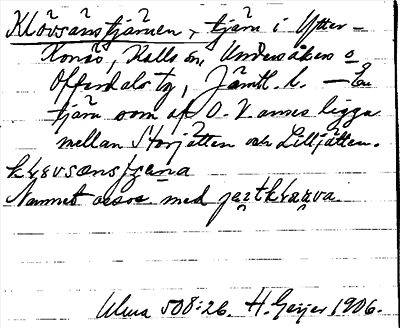 Klövsänstjärnen, tjärn i Ytter-
Konäs, Kalls sn, Undersåkers o
Offerdals tg, Jämtl. l. — En
tjärn som af O. V. anses ligga
mellan Storjätten och Lilljätten.
Namnet assoc. med
Ulma 508:26. H. Geijer 1906.